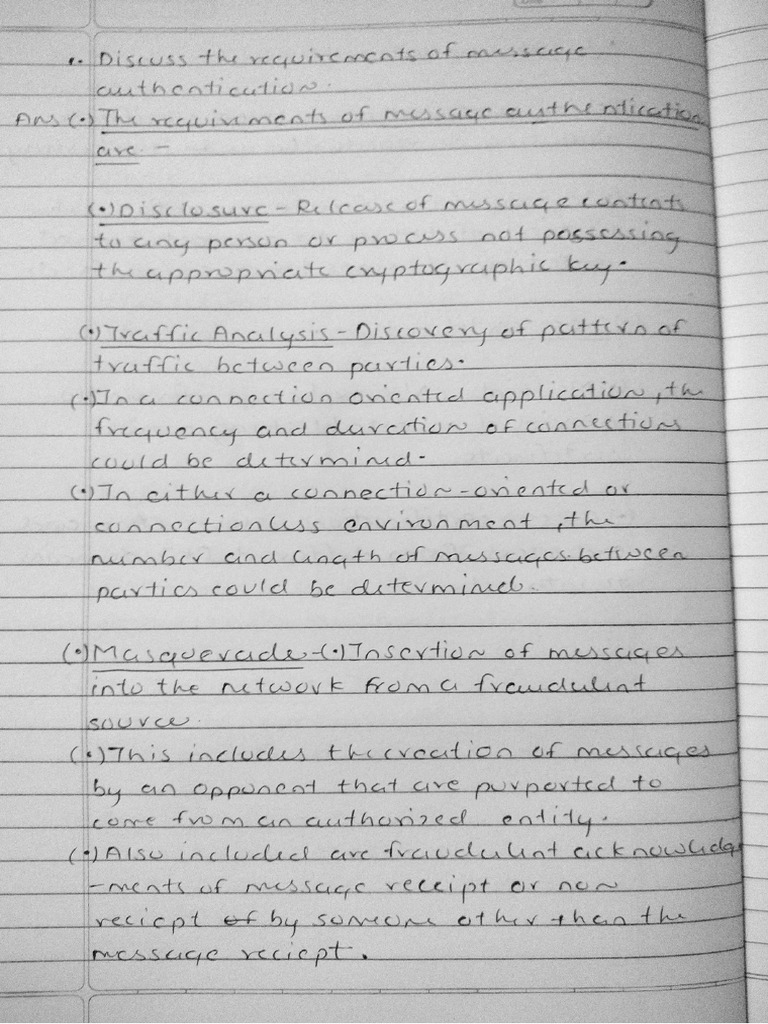 1. Discuss the requirements of message
authentication.
Ans (•) The requirements of message authentication
are -
(•) Disclosure - Release of message contents
to any person or process not possessing
the appropriate cryptographic key.
(•) Traffic Analysis - Discovery of pattern of
traffic between parties.
(•) In a connection oriented application, the
frequency and duration of connections
could be determined.
(•) In either a connection-oriented or
connectionless environment, the
number and length of messages between
parties could be determined.
(•) Masquerade - (•) Insertion of messages
into the network from a fraudulent
source.
(•) This includes the creation of messages
by an opponent that are purported to
come from an authorized entity.
(•) Also included are fraudulent acknowledge
-ments of message receipt or non
reciept of by someone other than the
message reciept.